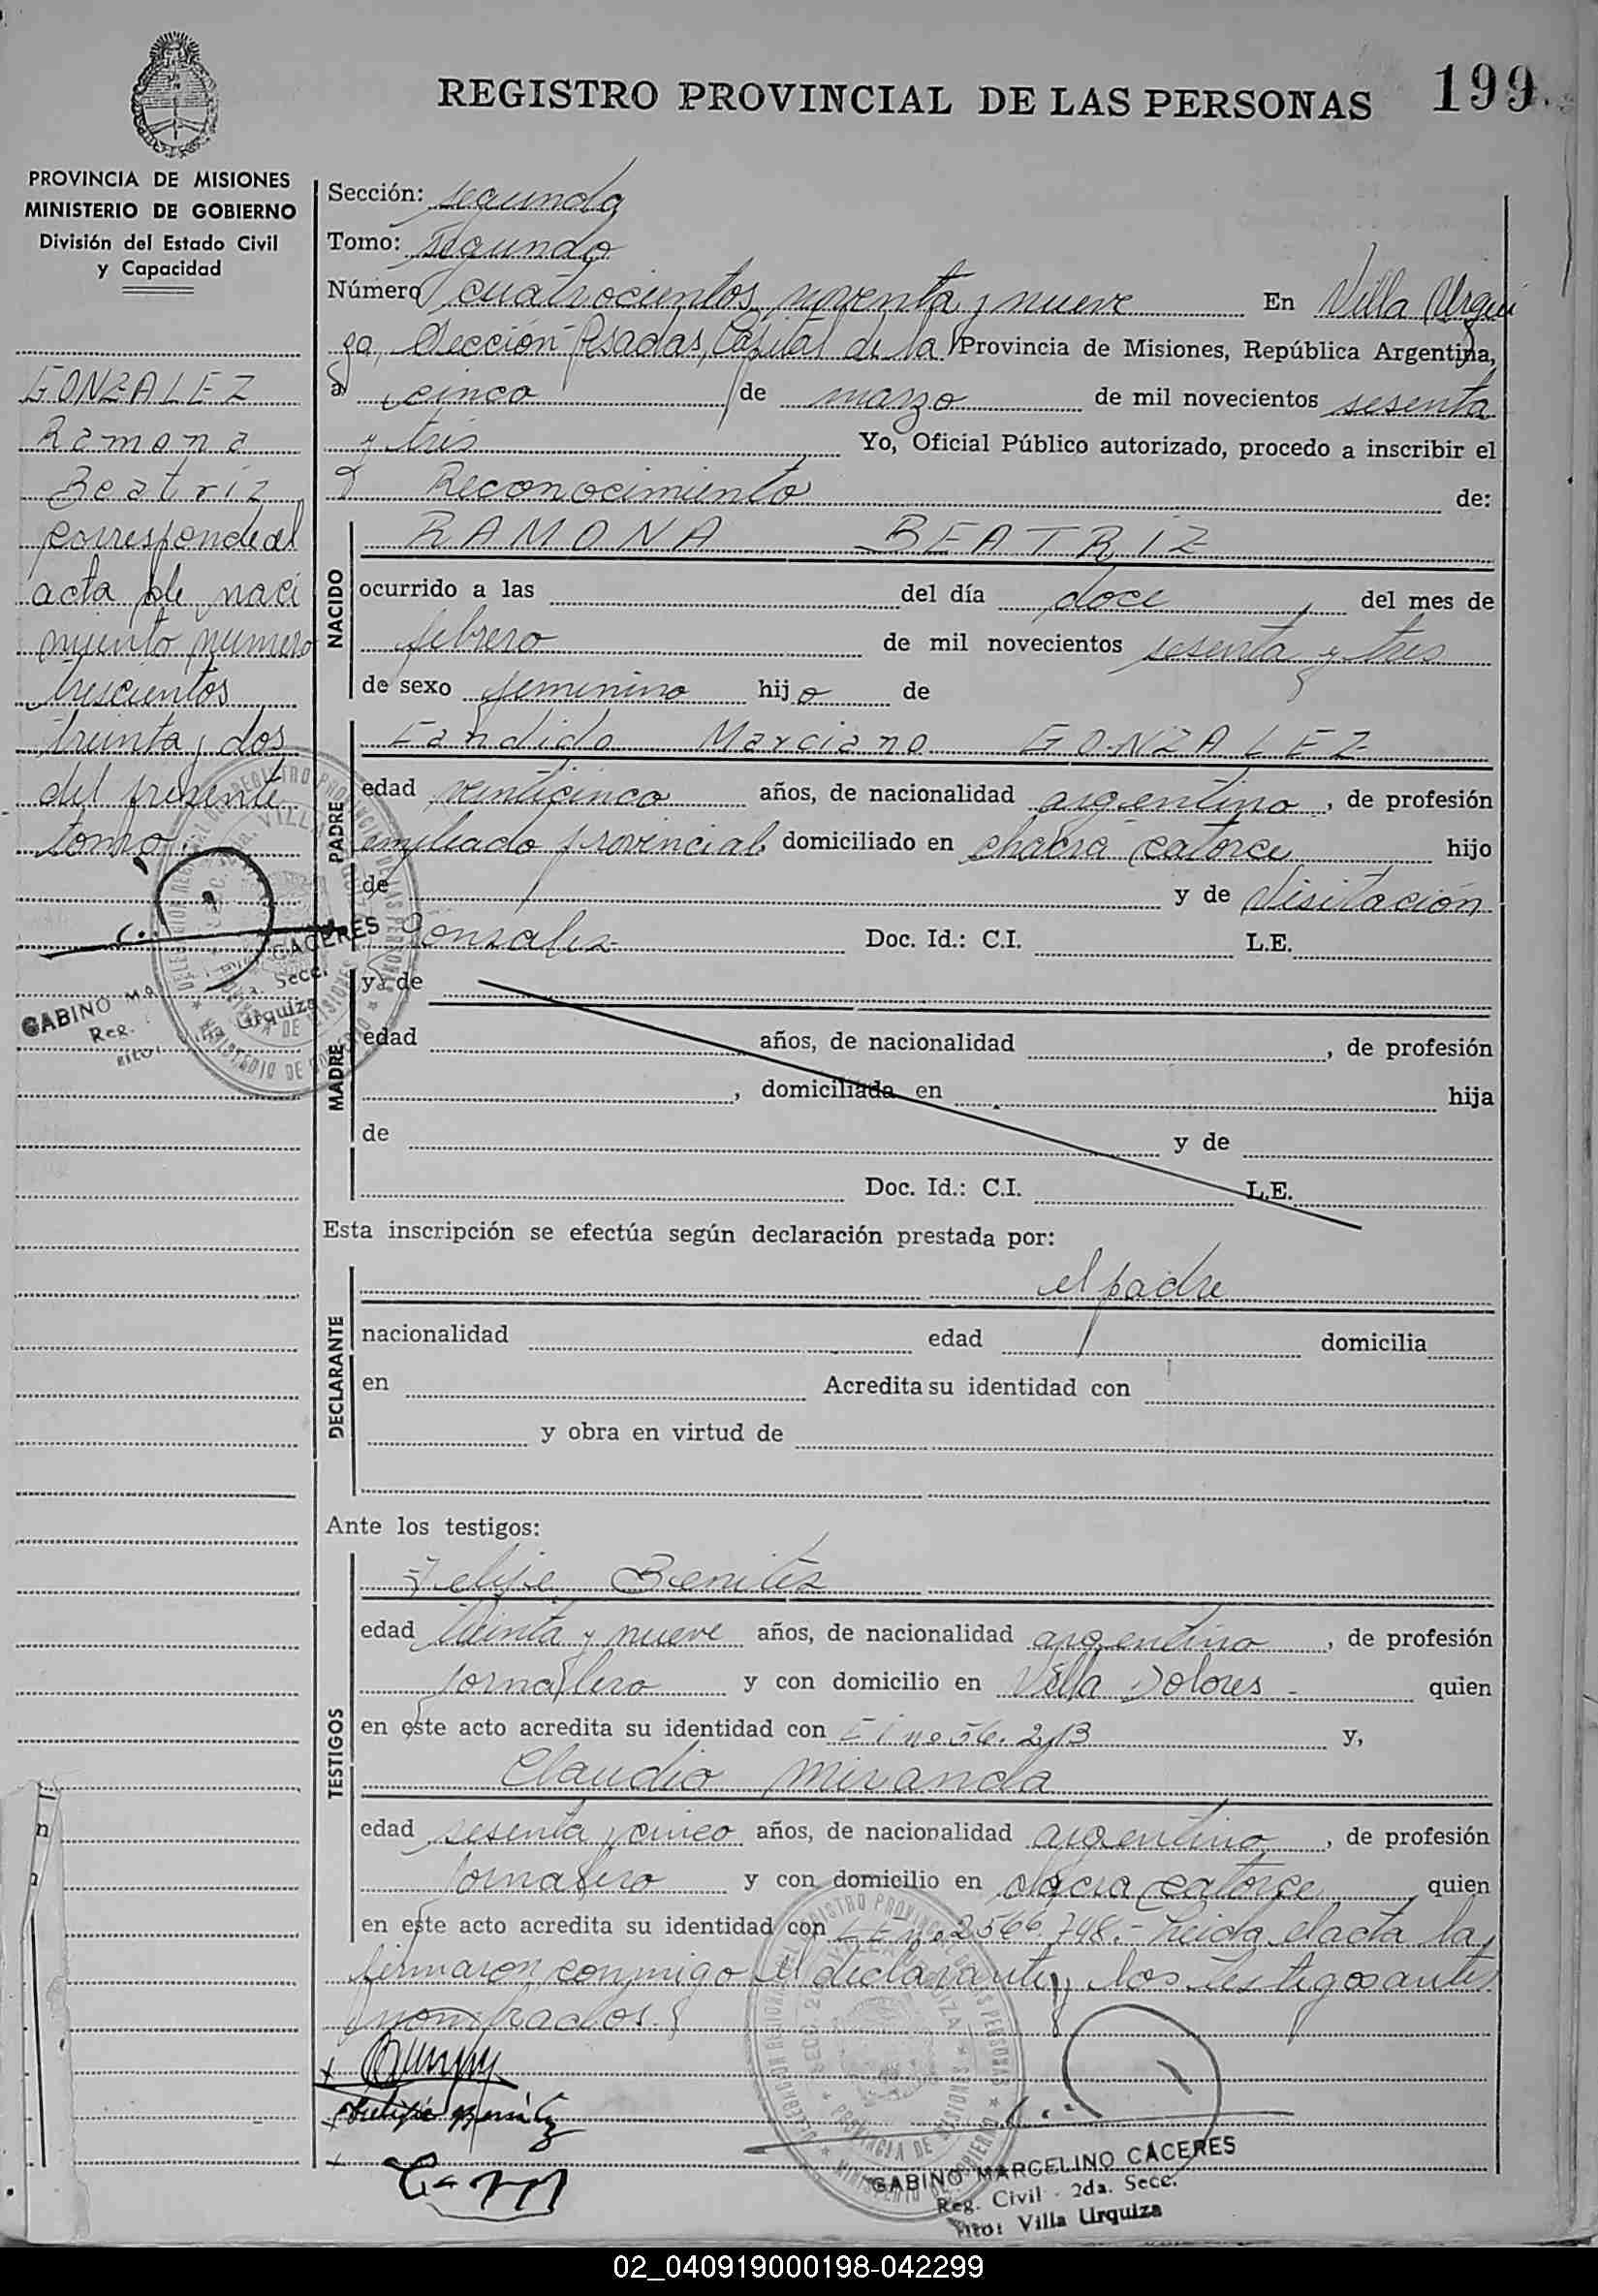 REGISTRO PROVINCIAL DE LAS PERSONAS 199
PROVINCIA DE MISIONES
MINISTERIO DE GOBIERNO
División del Estado Civil
y Capacidad
GONZALEZ
Ramona
Beatriz
corresponde al
acta de naci
miento numero
trescientos
treinta y dos
del presente
tomo.
GABINO
CACERES
Sección: segunda
Tomo: segundo
Número cuatrocientos noventa y nueve En Villa Urqui
za, Sección Posadas, Capital de la Provincia de Misiones, República Argentina,
a cinco de marzo de mil novecientos sesenta
y tres Yo, Oficial Público autorizado, procedo a inscribir el
Reconocimiento de:
NACIDO
RAMONA BEATRIZ
ocurrido a las del día doce del mes de
febrero de mil novecientos sesenta y tres
de sexo femenino hijo de
PADRE
Candido Marciano GONZALEZ
edad veinticinco años, de nacionalidad argentino, de profesión
empleado provincial domiciliado en chacra catorce hijo
de y de Visitación
Gonzalez Doc. Id.: C.I. L.E.
MADRE
y de
edad años, de nacionalidad , de profesión
, domiciliada en hija
de y de
Doc. Id.: C.I. L.E.
Esta inscripción se efectúa según declaración prestada por:
DECLARANTE
el padre
nacionalidad edad domicilia
en Acredita su identidad con
y obra en virtud de
Ante los testigos:
TESTIGOS
Felipe Benitez
edad treinta y nueve años, de nacionalidad argentino, de profesión
jornalero y con domicilio en Villa Dolores - quien
en este acto acredita su identidad con C I no 56.213 y,
Claudio Miranda
edad sesenta y cinco años, de nacionalidad argentino, de profesión
jornalero y con domicilio en chacra catorce quien
en este acto acredita su identidad con L E no 2566.748.- Leida el acta la
firmaron conmigo el declarante y los testigos antes
nombrados.
Felipe Benitez
GABINO MARCELINO CACERES
Reg. Civil - 2da. Secc.
Villa Urquiza
02_040919000198-042299